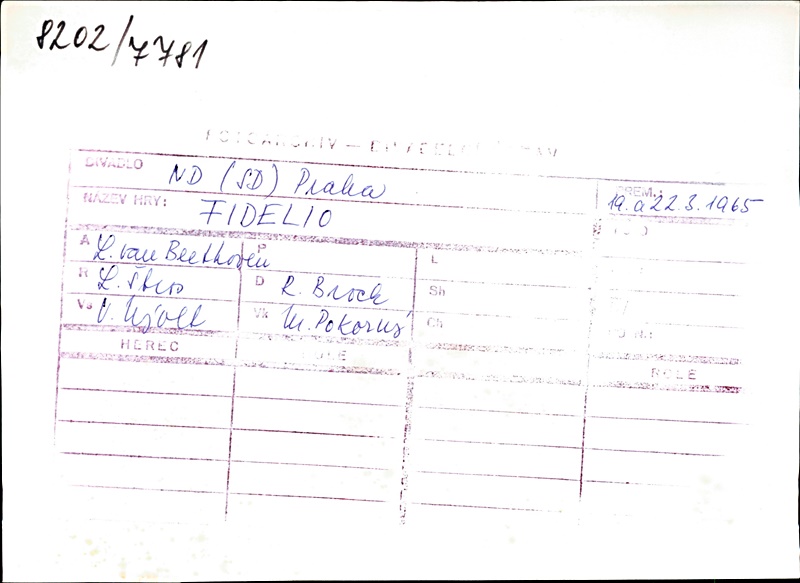 8202/7781
FOTOARCHIV –
DIVADLO ND (SD) Praha PREM.: 19. a 22.3.1965
NÁZEV HRY: FIDELIO
A L. van Beethoven P L
R D R. Brock Sh
Vs V. Vk M. Pokorný Ch
HEREC ROLE ROLE